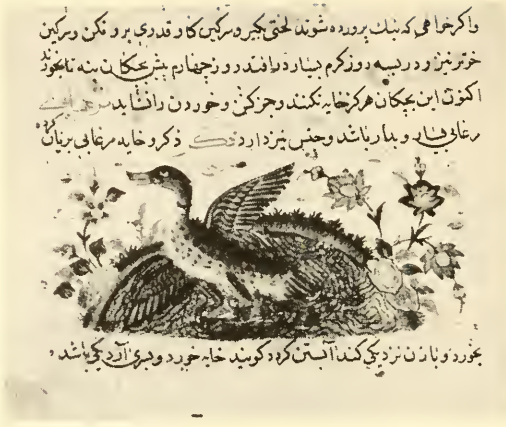 واکر خواهی که نیک پرورده شوند لختی بکیر و سرکین کاو قدری برو فکن و سرکین
خر تر نیز و در بسه دو ز کرم بسیار درافتد روز چهارم پیش بچکان بنه تا بخورند
اکنون این بچکان هرکز خایه نکنند و جز کشن و خوردن را نشاید
مرغابی بسیار و بدار باشد و جنس نیز دارد ذکر و خایه مرغابی بریان کرده
بخورد و با زن نزدیکی کند آبستن کردد کویند خایه خورد و بری آرد یکی باشد